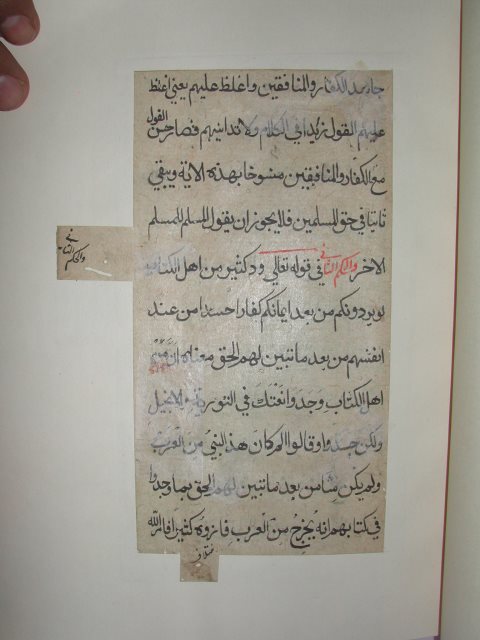 جاهد الكفار والمنافقين واغلظ عليهم يعني اغلظ
عليهم القول زيدا في الكلام ولا تدانيهم فصار حسن القول
مع الكفار والمنافقين منسوخا بهذه الاية ويبقي
ثابتا في حق المسلمين فلا يجوز ان يقول المسلم للمسلم
الاخر والحكم الثاني في قوله تعالي ود كثير من اهل الكتاب
لو يردونكم من بعد ايمانكم كفارا حسدا من عند
انفسهم من بعد ما تبين لهم الحق معناه ان
اهل الكتاب وجدوا نعتك في التورية والانجيل
ولكن حسدوا وقالوا لم كان هذا النبي من العرب
ولم يكن منا من بعد ما تبين لهم الحق بما وجدوا
في كتابهم انه يخرج من العرب فانزوه كثيرا فامر الله
والحكم الثاني